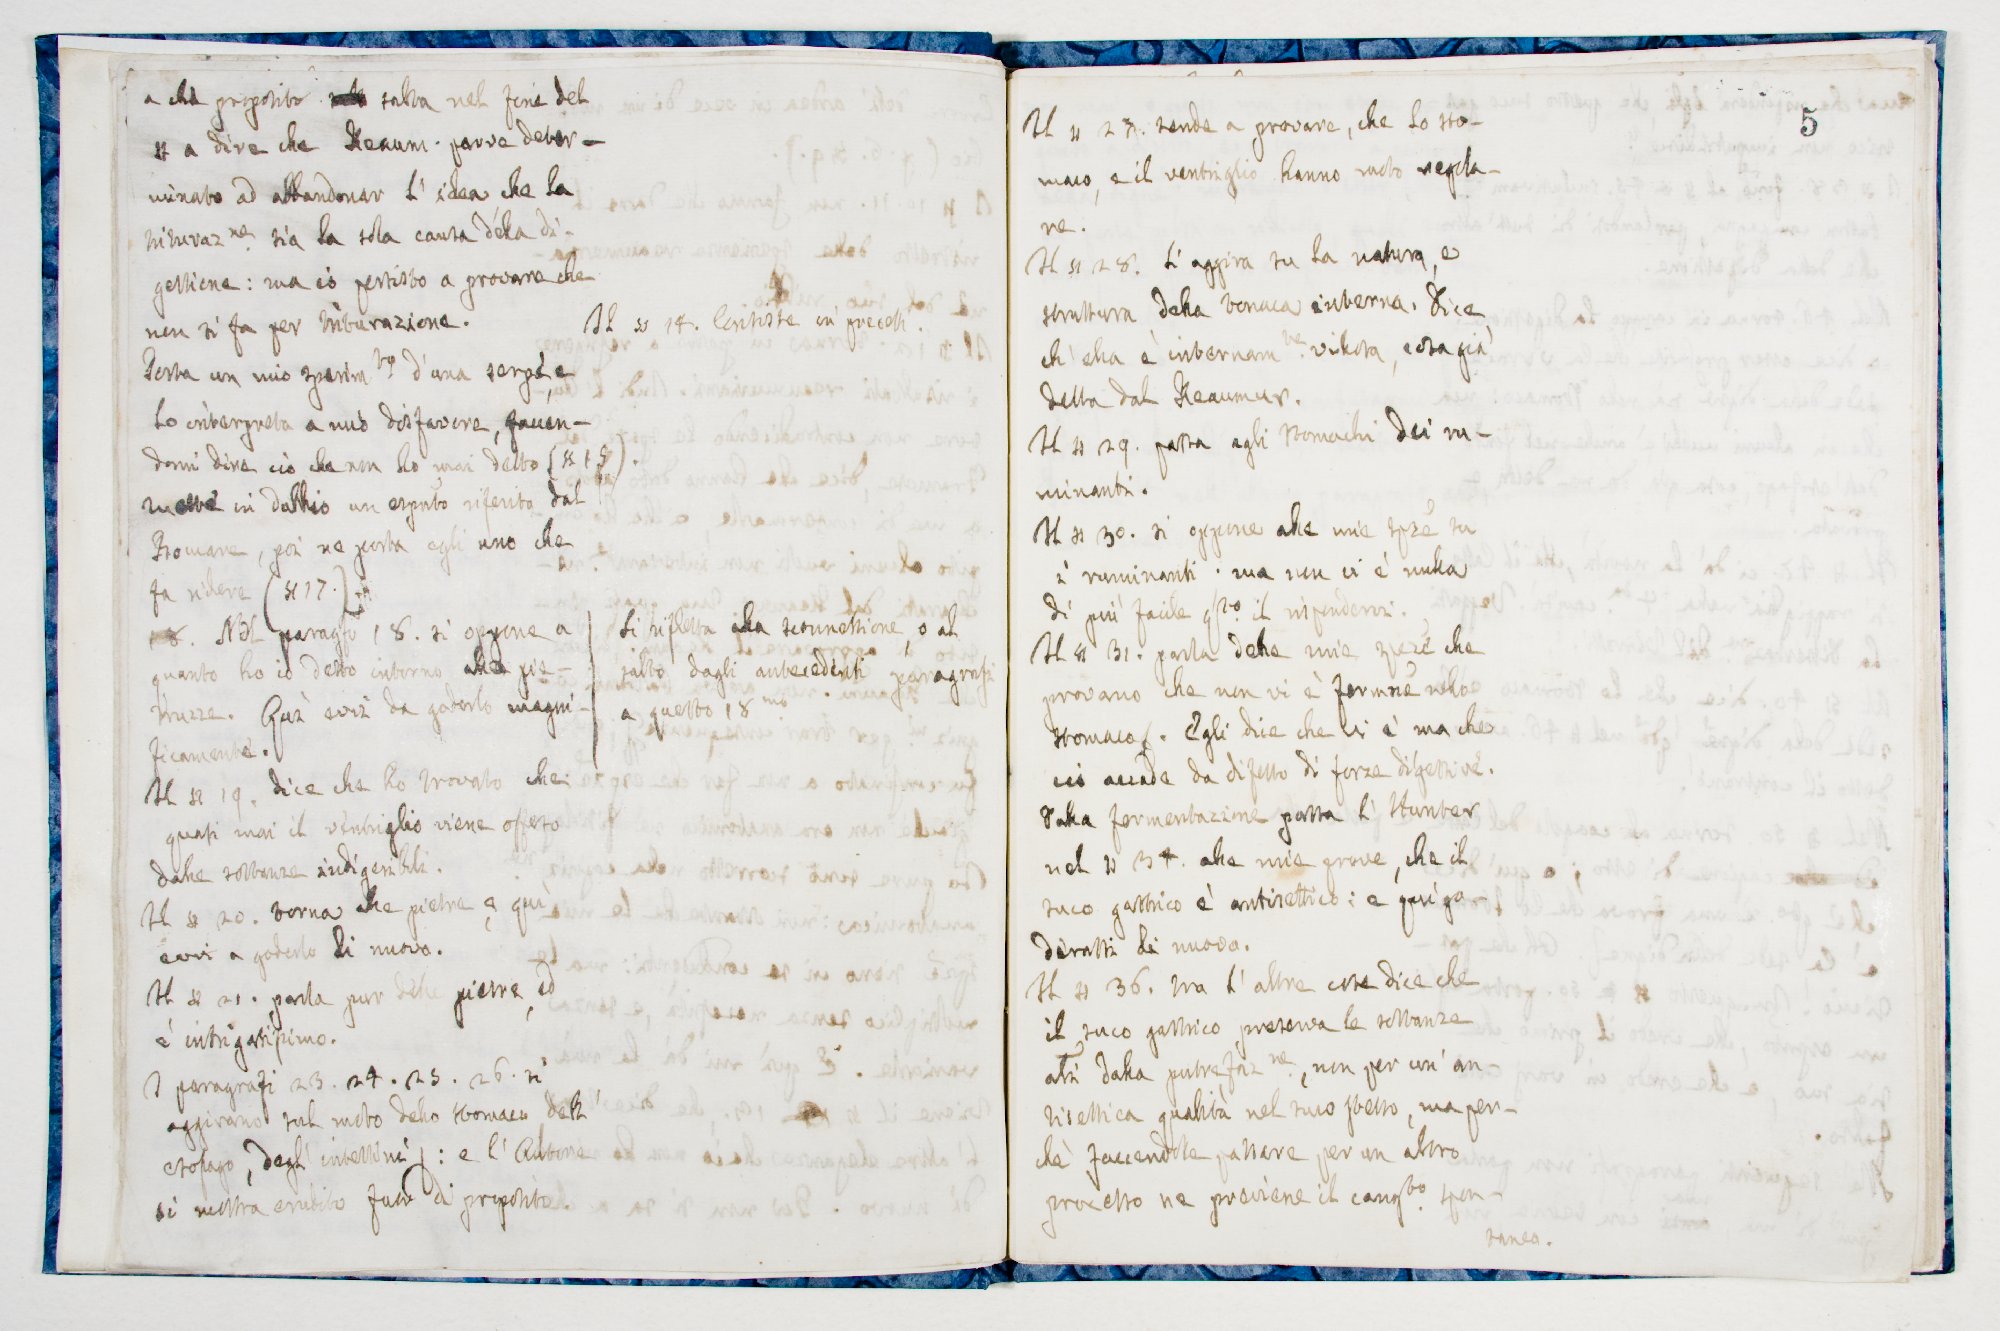 a che proposito salta nel fine del
§ a dire che Reaum. parve deter-
minato ad abbandonar l'idea, che la
triturazne. sia la sola causa della di-
gestione: ma ciò pertisto a provare che
non si fa per triturazione.
Il § 14. Consiste in precetti.
Porta un mio sperimto. d'una serpe, e
lo interpreta a mio disfavore, facen-
domi dire ciò che non ho mai detto (§ 15).
mette in dubbio un esprto riferito dal
fa ridere (§ 17.)
18. Nel paragfo 18. si oppone a
quanto ho io detto intorno alle pie-
truzze. Quì evvi da goderlo magni-
ficamente.
Si rifletta alla sconnessione, o al
salto dagli antecedenti paragrafi
a questo 18mo
Il § 19. dice che ho trovato che
quasi mai il ventriglio viene offeso
dalle sostanze indigeribili.
Il § 20. torna alle pietre, e quì
evvi a goderlo di nuovo.
Il § 21. parla pur delle pietre, ed
è intrigatissimo.
I paragrafi 23. 24. 25. 26. si
aggirano sul moto dello stomaco dell'
esofago, degl'intestini: e l'Autore
si mostra erudito fuor di proposito.
5
Il § 27. tende a provare, che lo sto-
maco, e il ventriglio hanno moto regola-
re.
Il § 28. s'aggira su la natura, e
struttura della tonaca interna. Dice,
ch'ella è internamte. villosa, cosa già
detta dal Reaumur.
Il § 29. passa agli stomachi dei ru-
minanti.
Il § 30. si oppone alle mie spze su
i ruminanti. ma non vi è nulla
di più facile qto. il rispondervi.
Il § 31. parla delle mie spze che
provano che non vi è fermne nello
stomaco. Egli dice che vi è ma che
ciò accade da difetto di forze digestive.
Dalla fermentazione passa l'Hunter
nel § 34. alle mie prove, che il
suco gastrico è antisettico: e quì go-
derassi di nuovo.
Il § 36. tra l'altre cose dice che
il suco gastrico preserva le sostanze
ali dalla putrefazne., non per un'an
tisettica qualità nel suco stesso, ma per-
chè facendole passare per un altro
processo ne previene il cangto. spon-
taneo.